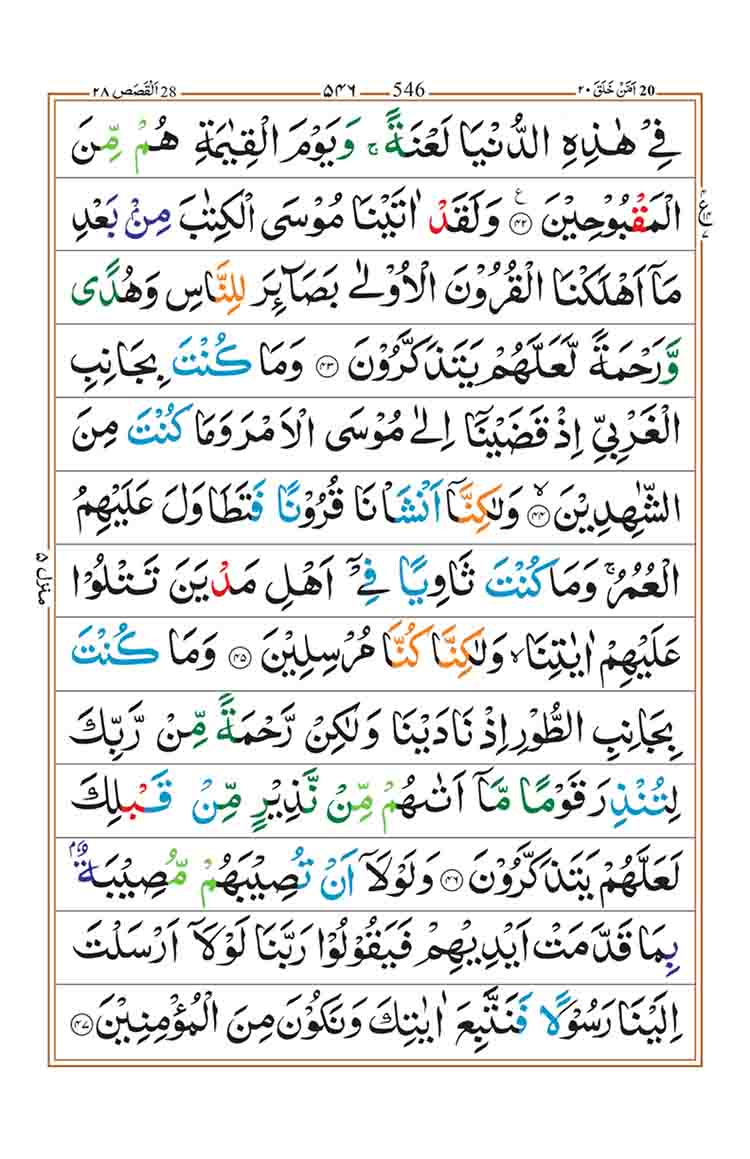 20 اَمَّنْ خَلَقَ ۲۰ 546 ۵۴۶ 28 اَلْقَصَص ۲۸
فِیْ هٰذِهِ الدُّنْیَا لَعْنَةً ۚ وَیَوْمَ الْقِیٰمَةِ هُمْ مِّنَ
الْمَقْبُوْحِیْنَ ۴۲ ع وَلَقَدْ اٰتَیْنَا مُوْسَی الْكِتٰبَ مِنْۢ بَعْدِ
مَاۤ اَهْلَكْنَا الْقُرُوْنَ الْاُوْلٰی بَصَآىِٕرَ لِلنَّاسِ وَهُدًی
وَّرَحْمَةً لَّعَلَّهُمْ یَتَذَكَّرُوْنَ ۴۳ وَمَا كُنْتَ بِجَانِبِ
الْغَرْبِیِّ اِذْ قَضَیْنَاۤ اِلٰی مُوْسَی الْاَمْرَ وَمَا كُنْتَ مِنَ
الشّٰهِدِیْنَ ۙ۴۴ وَلٰكِنَّاۤ اَنْشَاْنَا قُرُوْنًا فَتَطَاوَلَ عَلَیْهِمُ
الْعُمُرُ ۚ وَمَا كُنْتَ ثَاوِیًا فِیْۤ اَهْلِ مَدْیَنَ تَتْلُوْا
عَلَیْهِمْ اٰیٰتِنَا ۙ وَلٰكِنَّا كُنَّا مُرْسِلِیْنَ ۴۵ وَمَا كُنْتَ
بِجَانِبِ الطُّوْرِ اِذْ نَادَیْنَا وَلٰكِنْ رَّحْمَةً مِّنْ رَّبِّكَ
لِتُنْذِرَ قَوْمًا مَّاۤ اَتٰىهُمْ مِّنْ نَّذِیْرٍ مِّنْ قَبْلِكَ
لَعَلَّهُمْ یَتَذَكَّرُوْنَ ۴۶ وَلَوْلَاۤ اَنْ تُصِیْبَهُمْ مُّصِیْبَةٌۢ
بِمَا قَدَّمَتْ اَیْدِیْهِمْ فَیَقُوْلُوْا رَبَّنَا لَوْلَاۤ اَرْسَلْتَ
اِلَیْنَا رَسُوْلًا فَنَتَّبِعَ اٰیٰتِكَ وَنَكُوْنَ مِنَ الْمُؤْمِنِیْنَ ۴۷
منزل ۵